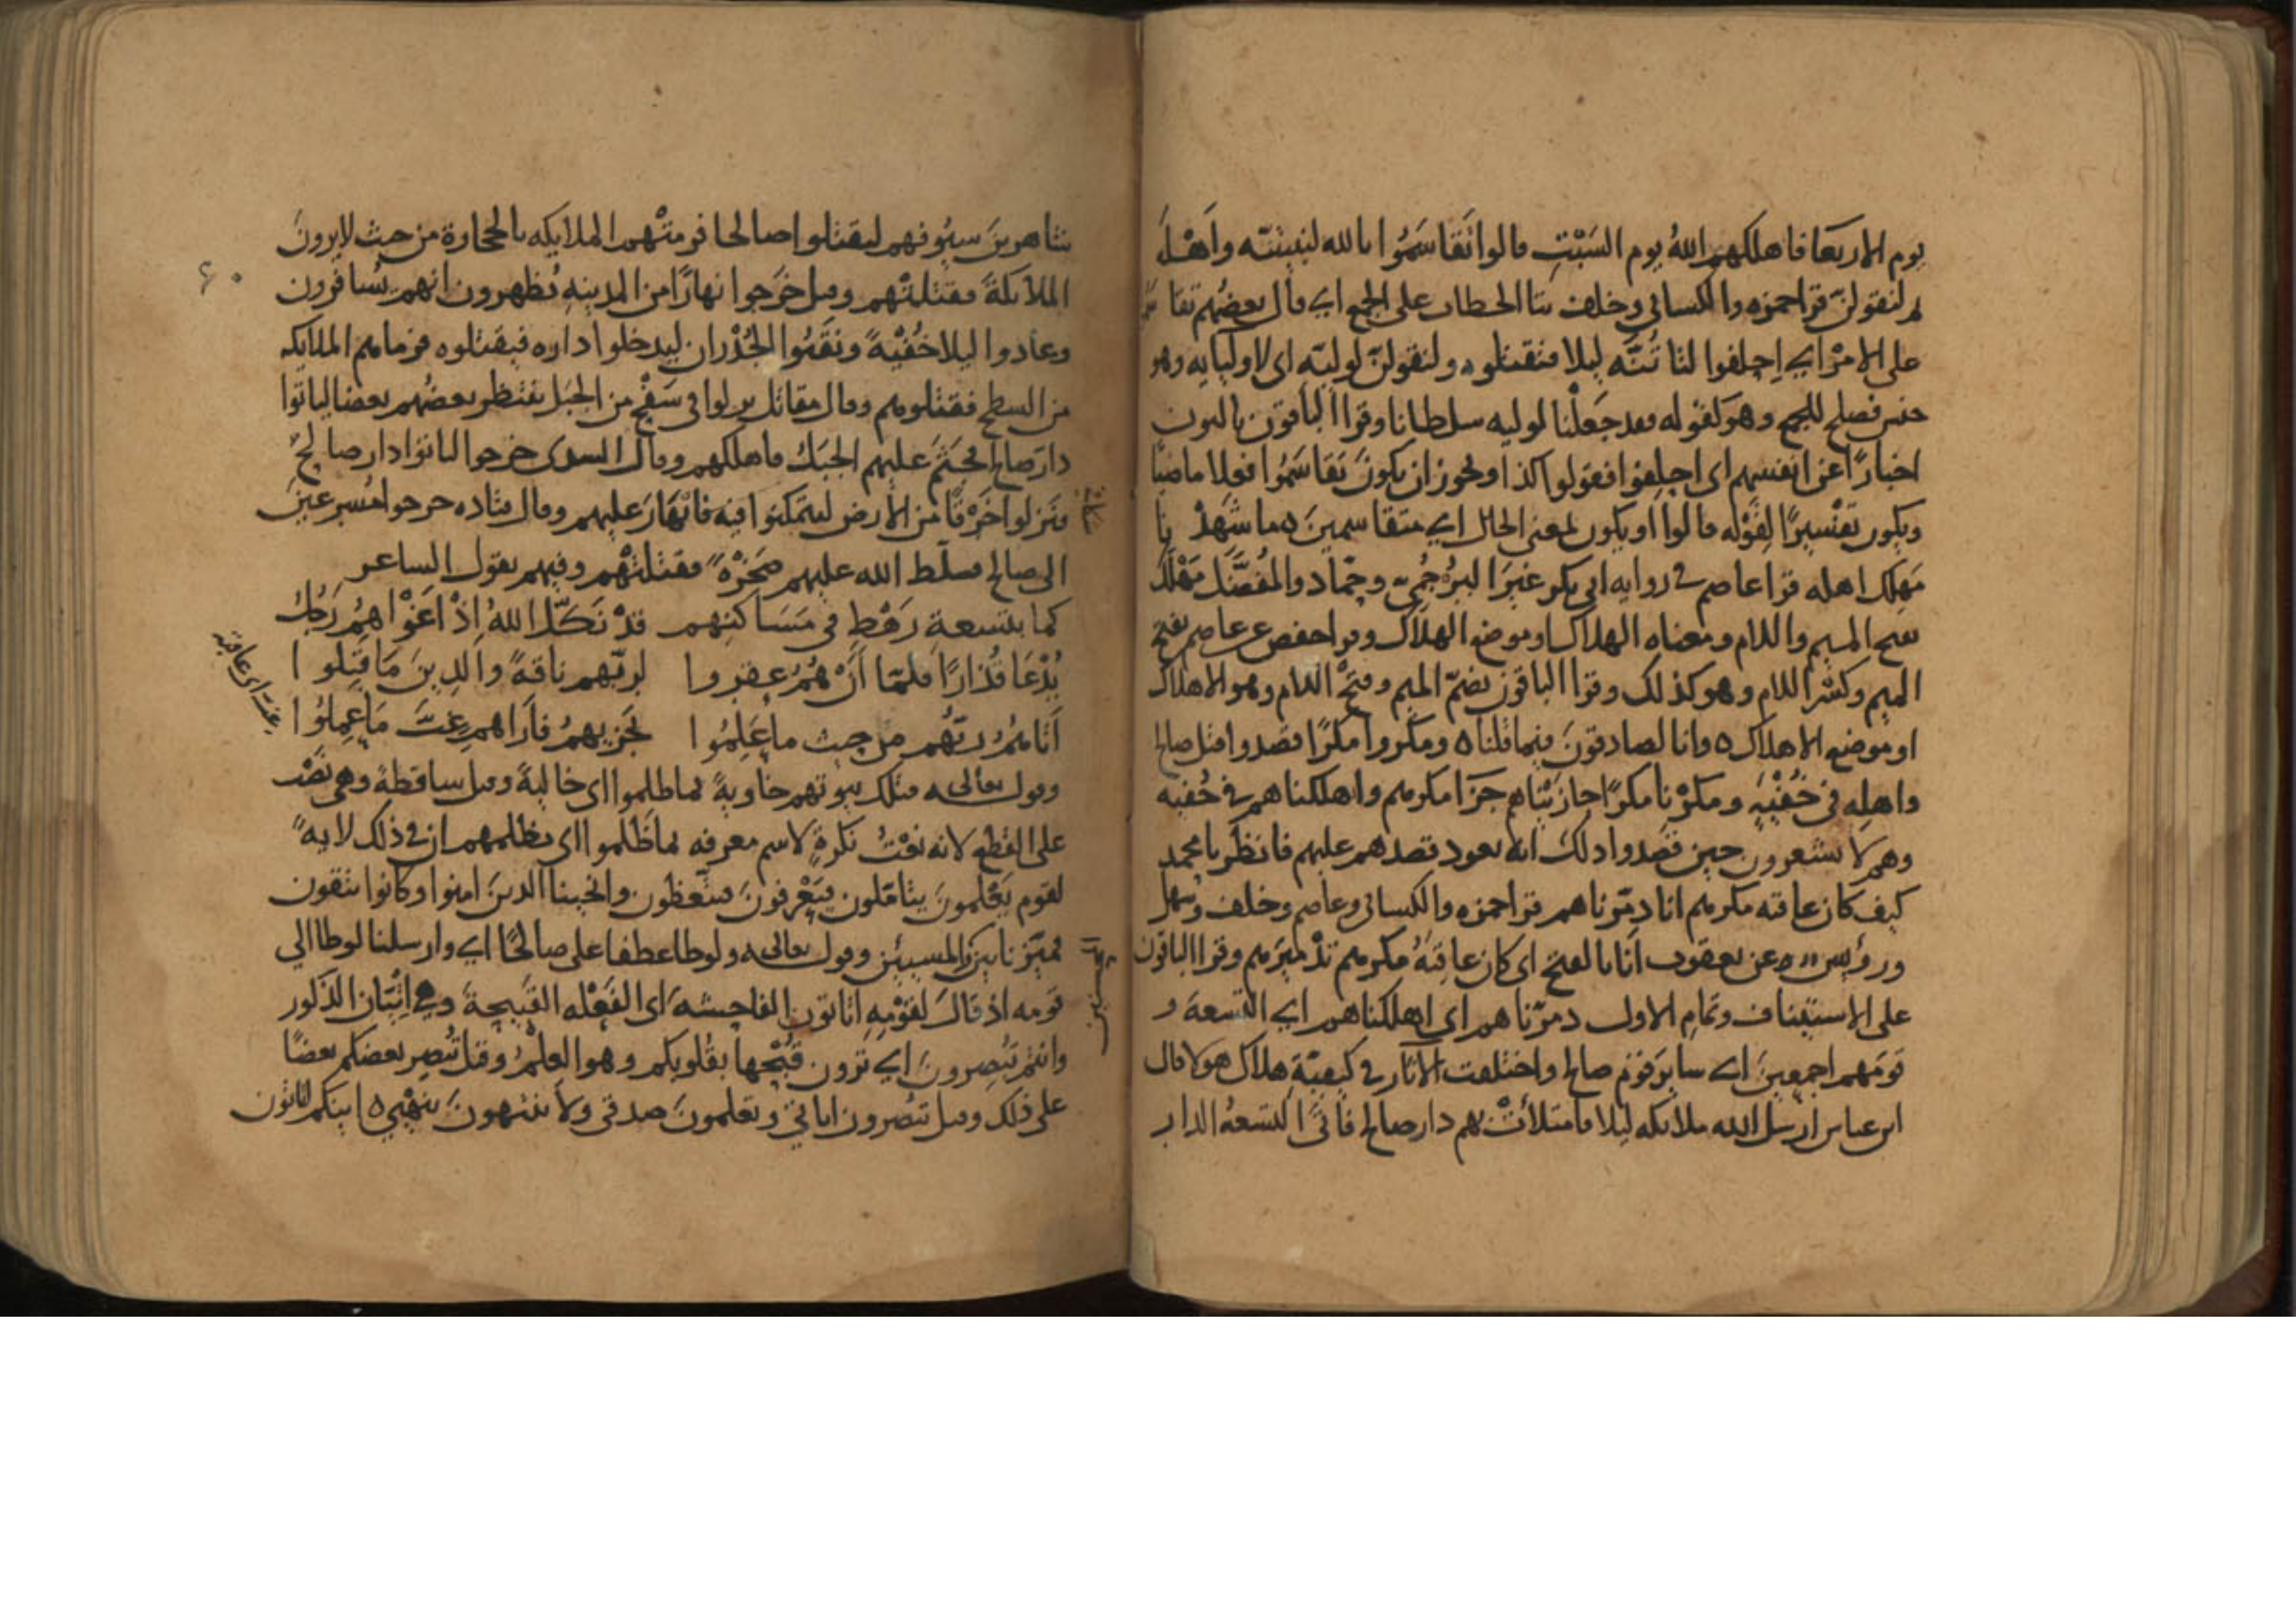 يوم الاربعا فاهلكهم الله يوم السَبْتِ قالوا تَقاسَمُوا بالله لنبيتنّه واَهْلَه
ثم لنقولنّ قرا حمزه والكسائي وخلف بتا الخطاب على الجمع اي قال بعضهم تقاسموا
على الامْر اي اِحلفوا لتاتُنّه ليلا فنقتلوه ولنقولنّ لوليّه اي لاوليايه وهو
جنس فصلح للجمع وهو كقوله فقد جَعَلْنا لوليه سلطانا وقرا الباقون بالنون
اخبارًا عن انفسهم اي احلِفوا فقولوا كذا ويجوز ان يكونَ تَقاسَمُوا فعلا ماضيًا
ويكون تفْسيرًا لِقَوْله قالوا او يكون لمعنى الحال اي متقاسمينَ ه ما شهِدْنا
مَهلِك اهله قرا عاصم في روايه ابي بكر غيرَ البُرْجُميّ وحمّاد والمُفضَّل مَهْلَك
بفتح الميم واللام ومعناه الهلاك او موضع الهلاك وقرا حفص عن عاصم بفتح
الميم وكسْر اللام وهو كذلك وقرا الباقون بضمّ الميم وفتْح اللام وهو الاهلاك
او موضع الاهلاك ه وانا لصادقونَ فيما قلنا ه ومكروا مكرًا قصدوا قتل صالح
واهلِه في خُفْيَةٍ ومكرْنا مكرًا جازيْناهم جَزَا مكرهم واهلكناهم في خُفيه
وهم لا يشعرون حين قصَدوا ذلك انه يعود قصدهم عليهم فانظُر يا محمد
كيف كان عاقبه مكرهم انا دمّرناهم قرا حمزه والكسائي وعاصم وخلف وسهل
ورؤيس عن يعقوب اَنا بالفتح اي كان عاقِبَهُ مكرهم تدْميرَهم وقرا الباقون
على الاستيناف وتمامِ الاول دمرّناهم اي اهلكناهم اي التسعهَ و
قومَهم اجمعينَ اي سايرَ قوْمِ صالح واختلفت الآثار في كيفيّةِ هلاك هولا قال
ابن عباس ارسل الله ملايكه ليلا فامتلأتْ بهم دار صالح فاَتى التسعهُ الدار
شاهرينَ سيُوفهم ليقتلوا صالحا فرمتْهم الملايكه بالحجارة من حيث لا يرونَ
الملائكةَ فقتلتْهم وقيل خَرَجوا نهارًا من المدينهِ يُظهرون انهم يُسافرون
وعادوا ليلا خُفْيةً ونَقَبُوا الجُدْران ليدخلوا داره فيقتلوه فرماهم الملايكه
من السطح فقتلوهم وقال مقاتل نزلوا في سَفْح من الجبَل ينتظر بعضُهم بعضا لياتوا
دارَ صالح فجَثَمَ عليهم الجبَل فاهلكهم وقال السدي خرجوا لياتوا دار صالحٍ
فنزلوا خَرْقًا من الارض ليتمكنوا فيه فانْهَارَ عليهم وقال قتاده خرجوا مُسرعينَ
الى صالح فسلّط الله عليهم صَخْرَةً فقتلتْهم وفيهم يقول الشاعر
كما بتسعةِ رَهْطٍ في مَسَاكنِهم قدْ نَكَّل اللهُ اِذْ اَغْواهمُ رَجُلُ
يُدْعَا قُدَارًا فلمّا أَنْ هُمُ عقروا لربّهم ناقةً والدِينَ مَا قَبِلوا
اَتاهمُ ربّهم من حيث ما عَلِمُوا يَجزيهمُ فأَراهم غِبَّ مَا عمِلوُا
غب اي عاقبه
وقول تعالى ه فتلك بيوتهم خاويةً بما ظلموا اي خاليةً وقيل ساقطةً وهي نصْب
على القَطع لانه نعْتُ نكرةٍ لاسم معرفه بما ظَلموا اي بظلمهم ان في ذلك لايةً
لقوم يَعْلمونَ يتاملون فيَعْرفونَ فيتّعظون وانجينا الدينَ امنوا وكانوا يتقون
ميّزنا بيْن المسييْن وقول تعالى ه ولوطا عطفا على صالحًا اي وارسلنا لوطا الي
قومه اذ قالَ لِقَوْمِهِ اتاتون الفاحشهَ اي الفَعْله القَبيحةَ وهي اِتْيَان الذكور
وانتم تُبصِرونَ اي تَرون قُبْحها بقُلوبكم وهو العِلْمُ وقيل يُبْصِر بعضكم بعضًا
على ذلك وقيل تبْصرون اياتي وتعلمونَ صدقي ولا تنتهونَ بنهْيي ه اينكم لتاتون